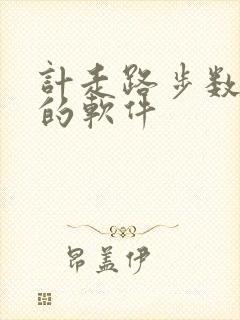 計走路步数
的軟件
昂盖伊